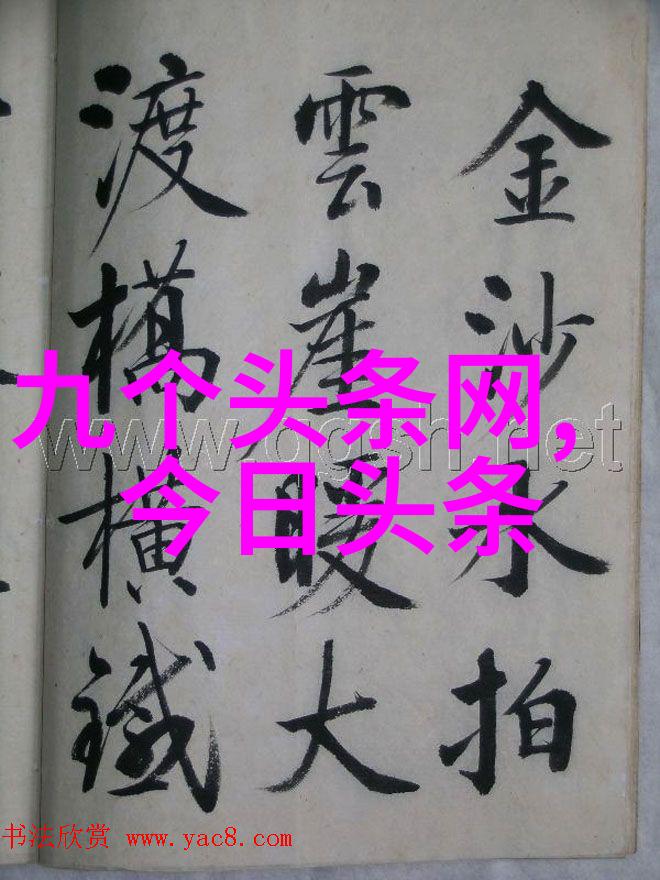 金沙水拍
雲崖暖大
渡橋橫鐵
九个头条网,
今日头条
书法欣赏 www.yac8.com